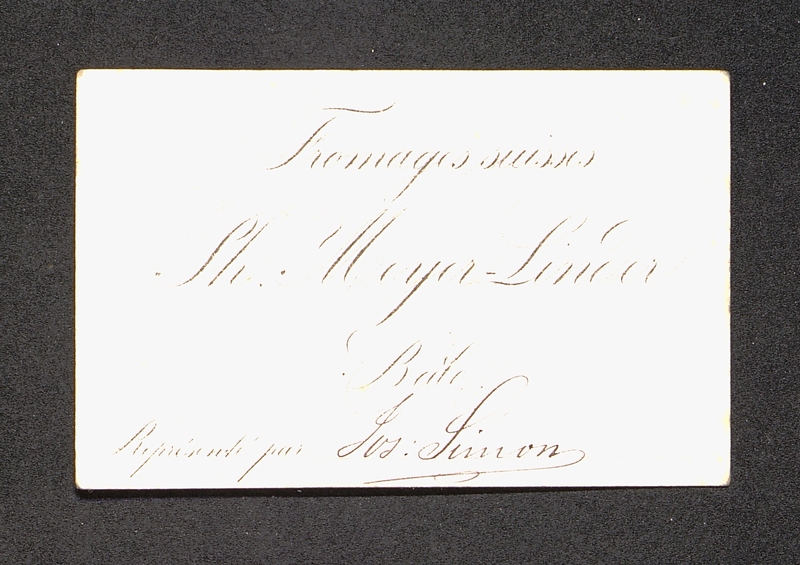 Fromages suisses
Ph. Meyer-Linder
Bâle
Représenté par Jos: Simon